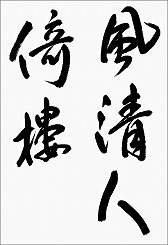 風清人
倚樓